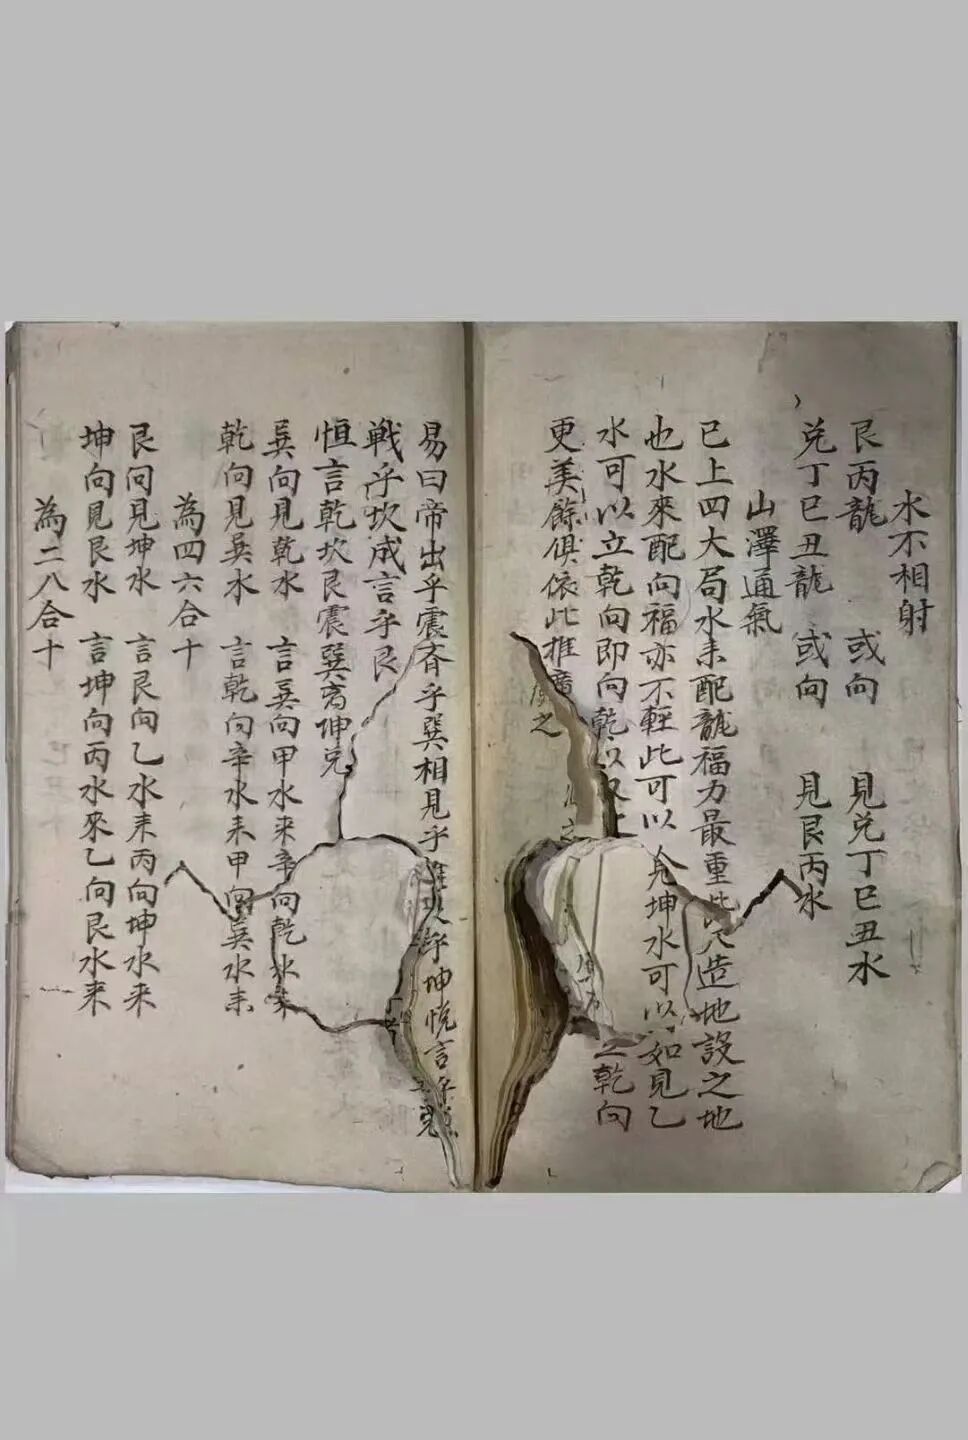 水不相射
艮丙龍 或向 見兌丁巳丑水
兌丁巳丑龍 或向 見艮丙水
山澤通氣
已上四大局水未配龍福力最重此 造地設之地
也水來配向福亦不輕此可以 見坤水可以 如見乙
水可以立乾向即向乾以 乾向
更美餘俱依此推廣之
易曰帝出乎震斉乎巽相見乎 乎坤悅言乎
戦乎坎成言乎艮
恒言乾坎艮震巽离坤兌
巽向見乾水 言巽向甲水来辛向乾水来
乾向見巽水 言乾向辛水耒甲向巽水耒
為四六合十
艮向見坤水 言艮向乙水耒丙向坤水来
坤向見艮水 言坤向丙水來乙向艮水来
為二八合十